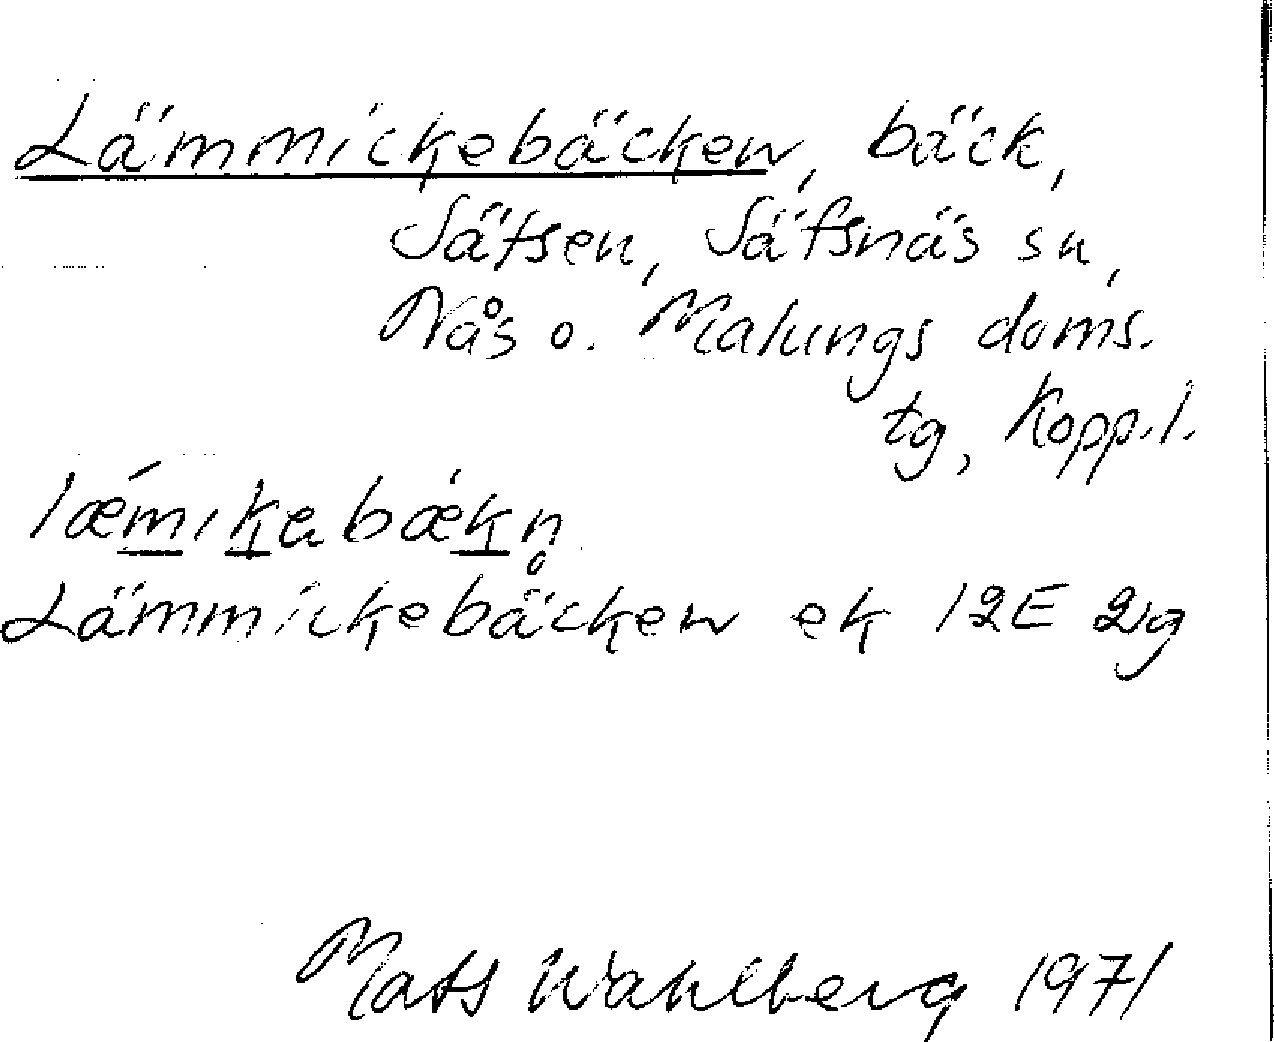 Lämmickebäcken, bäck,
Säfsen, Säfsnäs sn,
Nås o. Malungs doms.
tg, Kopp.l.
læ̒mıkabæ̀kn̥
Lämmickebäcken ek 12E 2g
Mats Wahlberg 1971